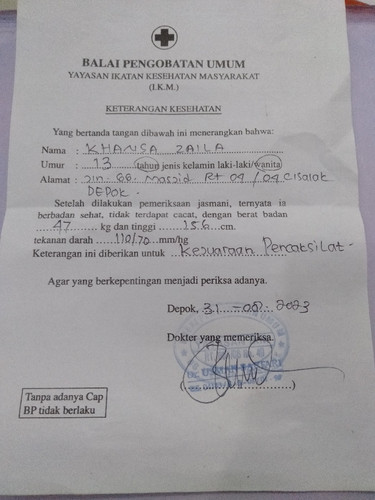 BALAI PENGOBATAN UMUM
YAYASAN IKATAN KESEHATAN MASYARAKAT
(I.K.M.)
KETERANGAN KESEHATAN
Yang bertanda tangan dibawah ini menerangkan bahwa:
Nama : KHANSA ZAILA
Umur : 13 tahun jenis kelamin laki-laki/wanita
Alamat : Jln. GG. Masjid Rt 04 / 04 Cisalak
DEPOK.
Setelah dilakukan pemeriksaan jasmani, ternyata ia
berbadan sehat, tidak terdapat cacat, dengan berat badan
47 kg dan tinggi 156 cm.
tekanan darah 110/70 mm/hg
Keterangan ini diberikan untuk Kejuaraan Pencaksilat -
Agar yang berkepentingan menjadi periksa adanya.
Depok, 31 - 2023
Dokter yang memeriksa
Tanpa adanya Cap
BP tidak berlaku